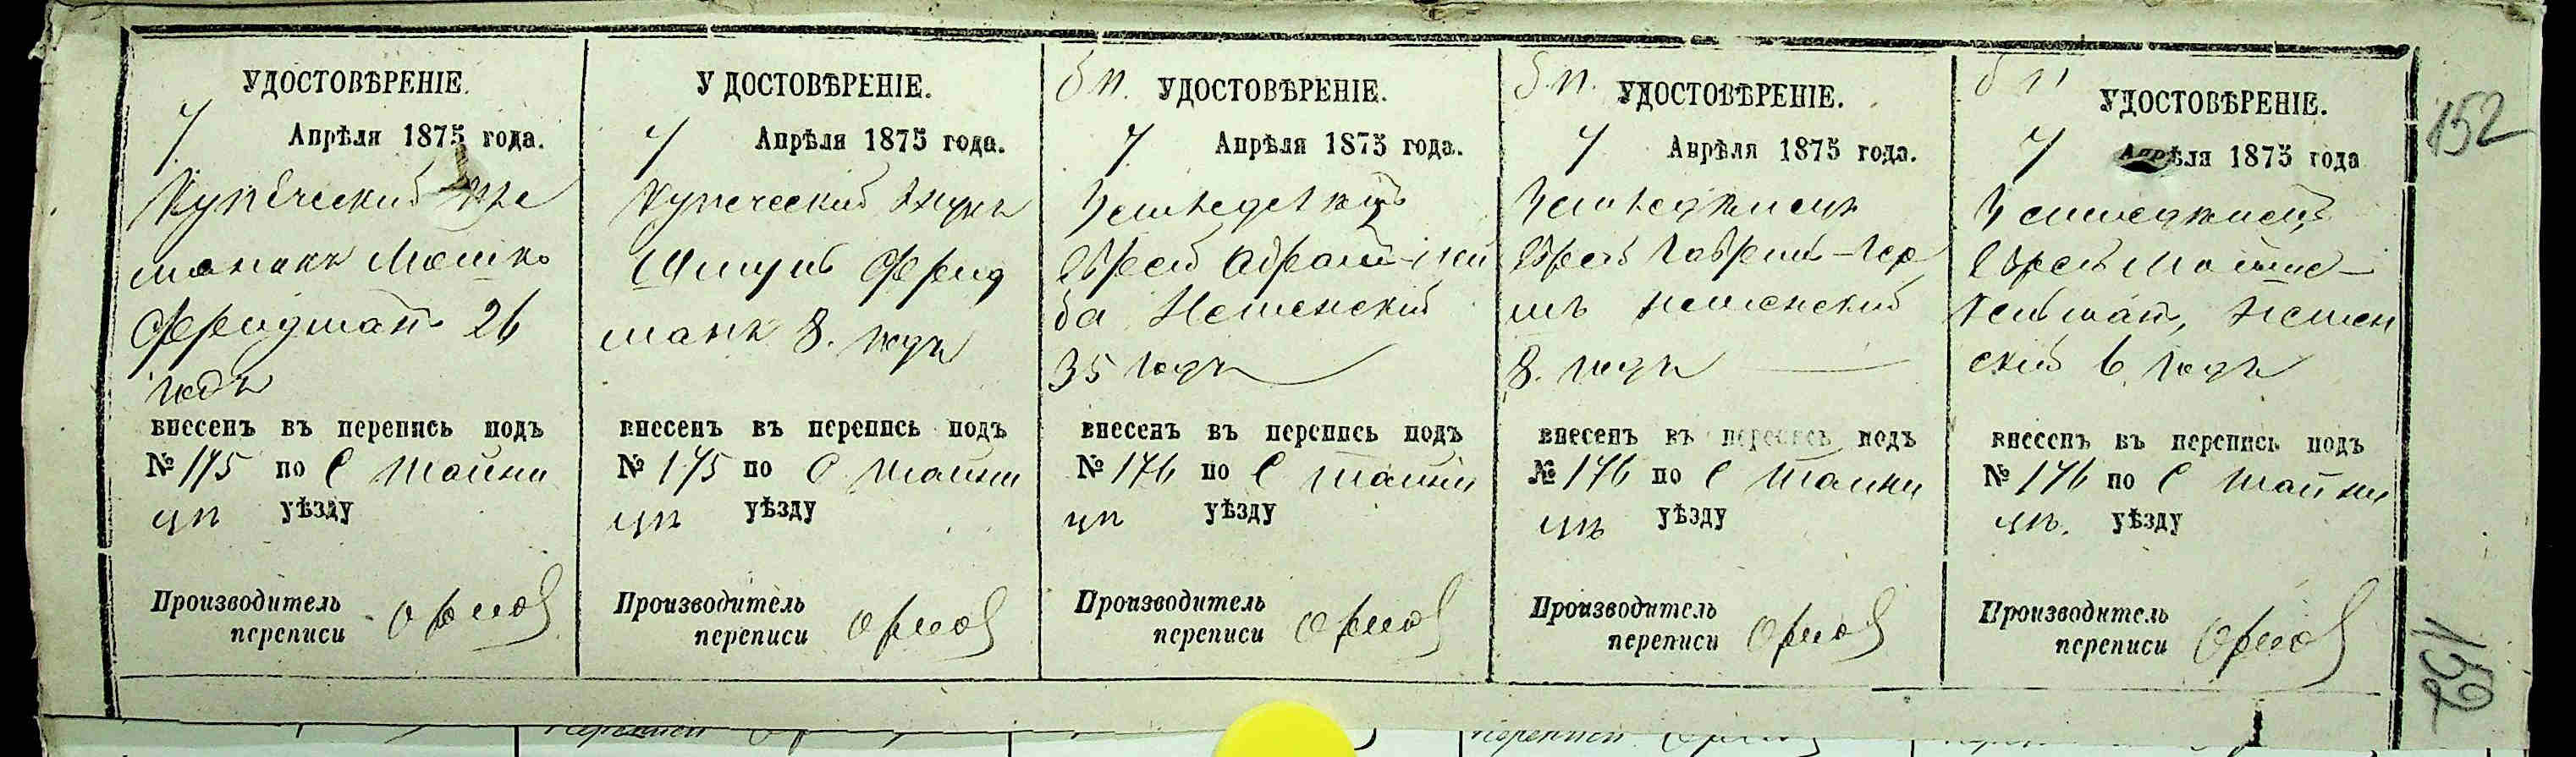 УДОСТОВѢРЕНІЕ.
7 Апрѣля 1875 года.
Купеческій пле
маникъ Мошко
Фридманъ 26
годъ
внесенъ въ перепись подъ
№ 175 по С Шайки
уѣзду
Производитель
переписи Орлов
УДОСТОВѢРЕНІЕ.
7 Апрѣля 1875 года.
Купеческій внукъ
Шмуль Фрид
манъ 8. годъ
внесенъ въ перепись подъ
№ 175 по С Шайки
уѣзду
Производитель
переписи Орлов
б п. УДОСТОВѢРЕНІЕ.
7 Апрѣля 1875 года.
Еврей Абрам-Лей
ба Неменскій
35 годъ
внесенъ въ перепись подъ
№ 176 по С Шайки
уѣзду
Производитель
переписи Орлов
б. п. УДОСТОВѢРЕНІЕ.
7 Апрѣля 1875 года.
Еврей Гавріил-Гер
шъ Неменскій
8. годъ
внесенъ въ перепись подъ
№ 176 по С Шайки
уѣзду
Производитель
переписи Орлов
б п УДОСТОВѢРЕНІЕ.
7 Апрѣля 1875 года
Еврей
Немен
скій 6. годъ
внесенъ въ перепись подъ
№ 176 по С Шайки
уѣзду
Производитель
переписи Орлов
152
152